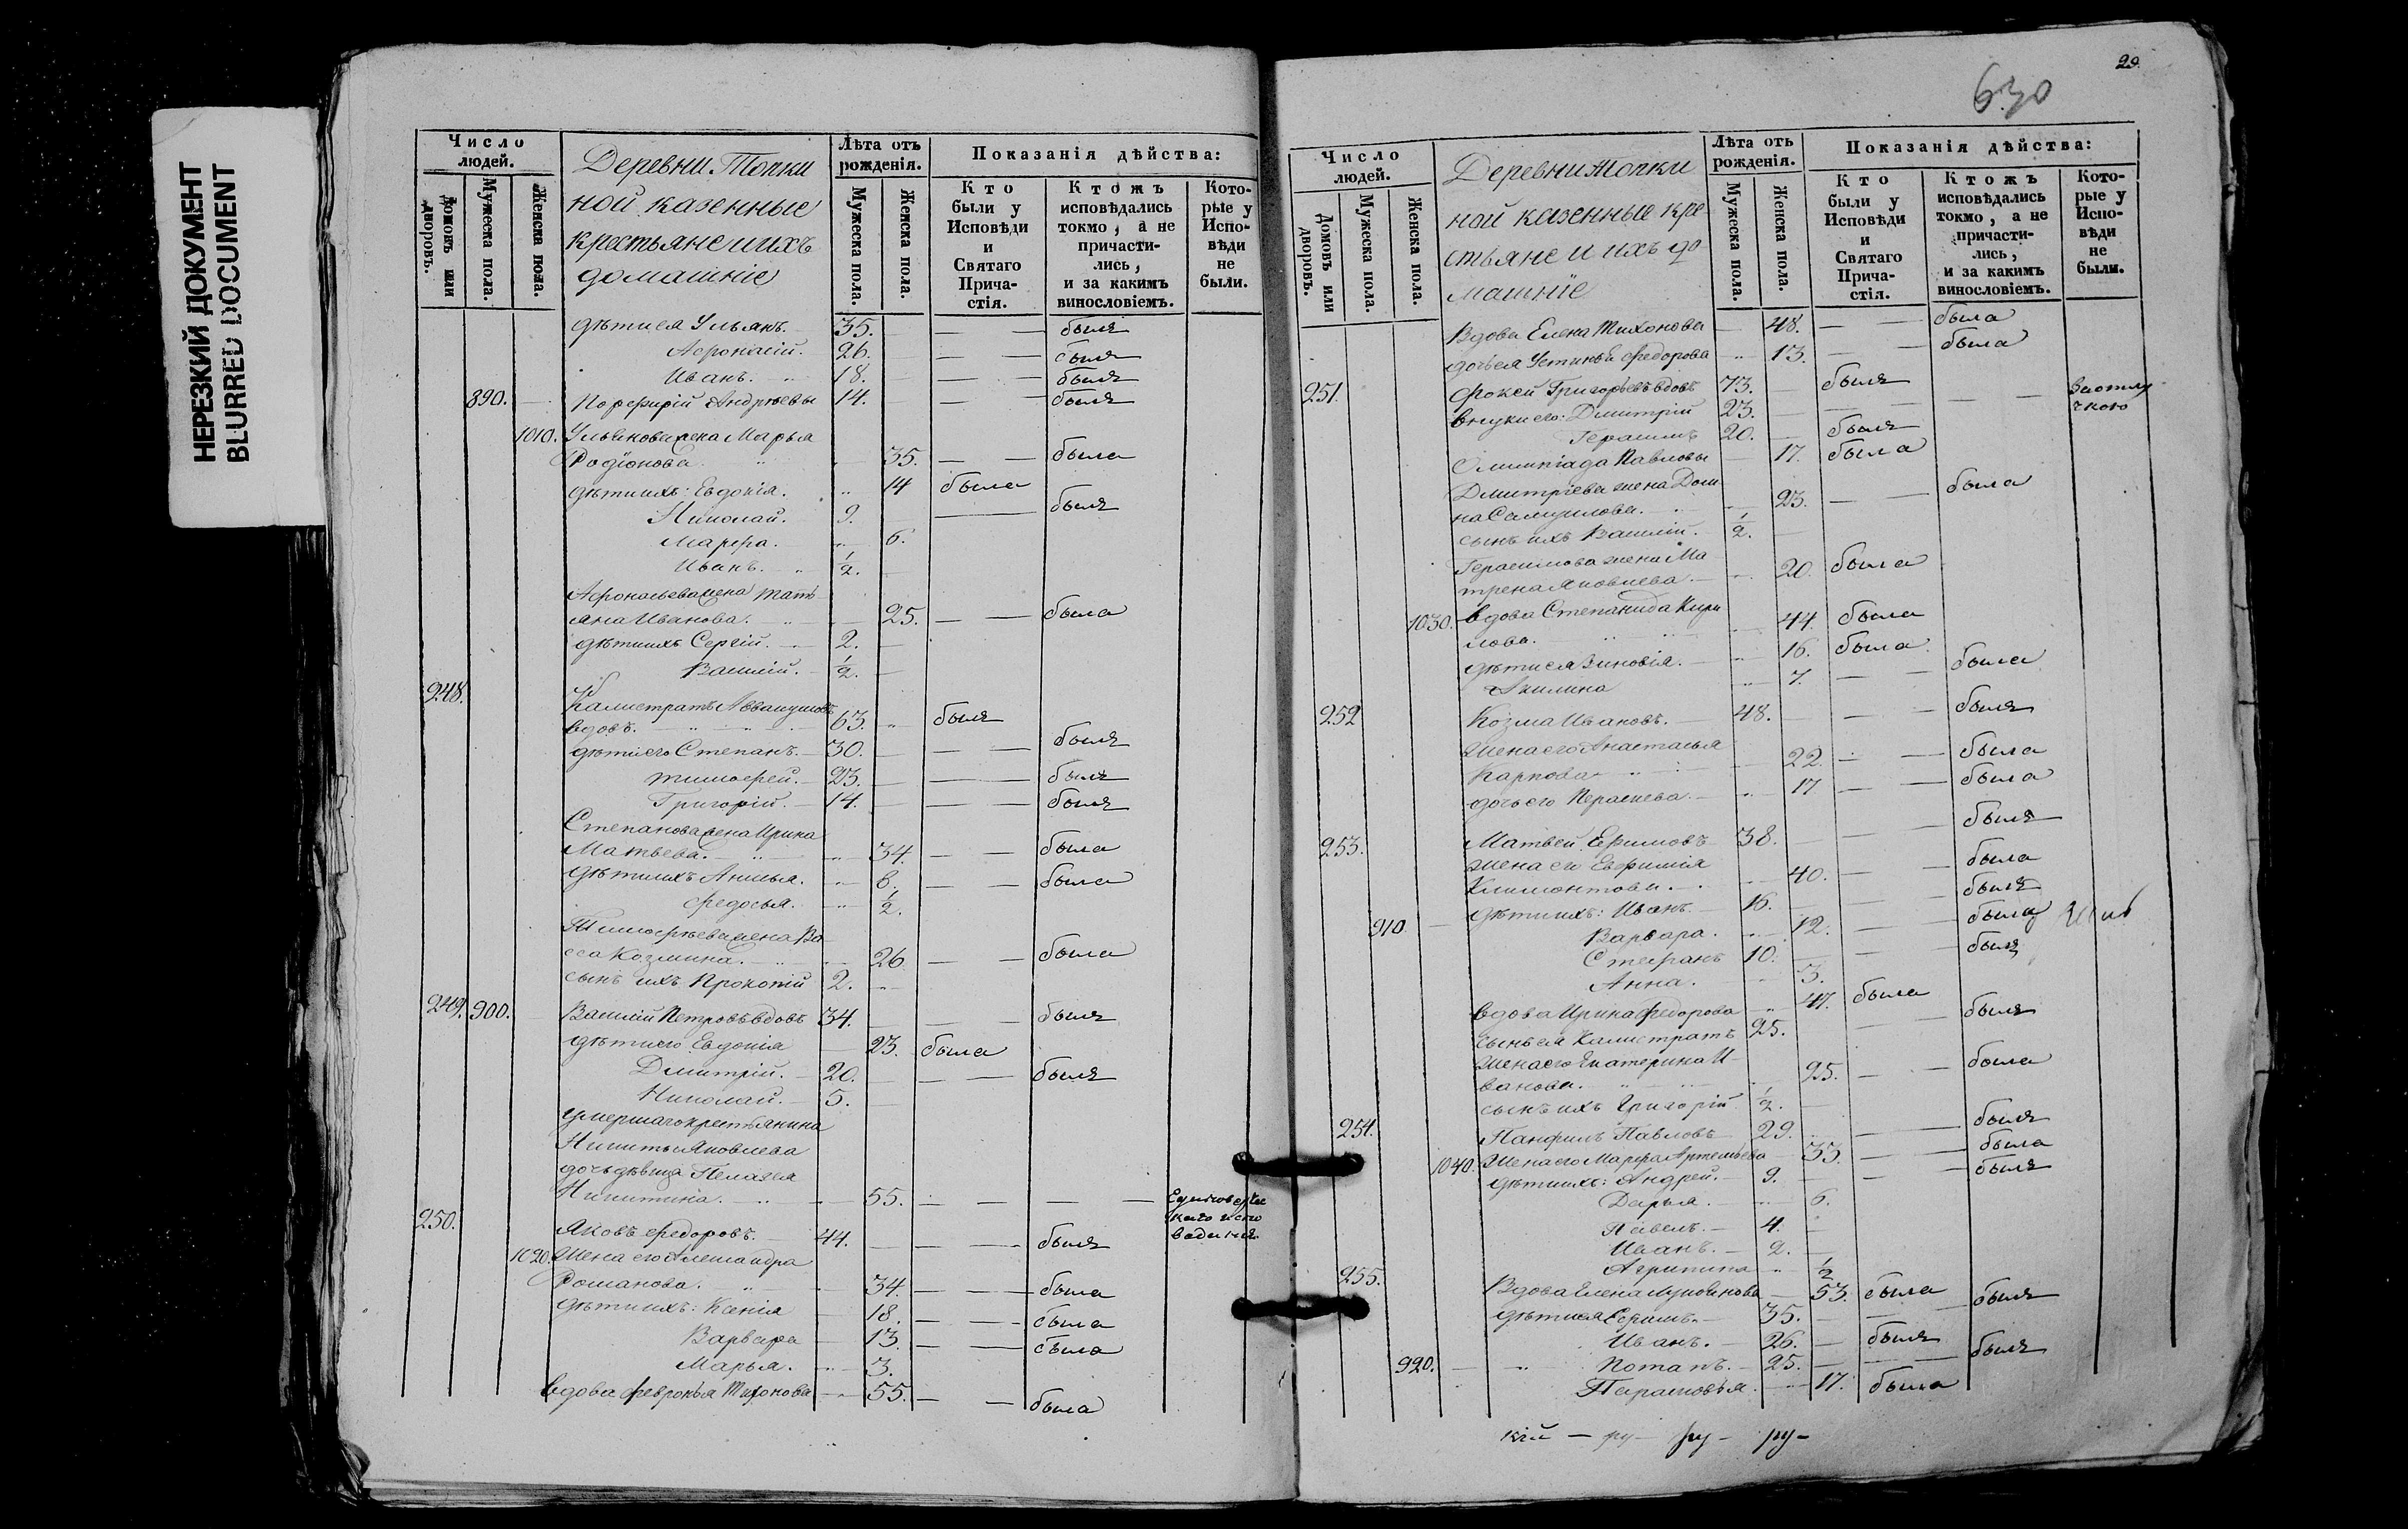 НЕРЕЗКИЙ ДОКУМЕНТ
BLURRED DOCUMENT
Число людей.
домовъ или дворовъ.
Мужеска пола.
Женска пола.
Деревни Топки
ной казенные
крестьяне и ихъ
домашніе
Лѣта отъ рожденія.
Мужеска пола.
Женска пола.
Показанія дѣйства:
Кто были у Исповѣди и Святаго Прича-стія.
Ктожъ исповѣдались токмо, а не причасти-лись, и за какимъ винословіемъ.
Кото-рые у Испо-вѣди не были.
дѣти ея Ульянъ. 35. — — былъ
Афонасій. 26. — — былъ
Иванъ. 18. — — былъ
890. Порфирій Андреевы 14. — — былъ
1010. Ульянова жена Марья
Родіонова. 35. — — была
дѣти ихъ: Евдокія. 14 была
Николай. 9. — былъ
Марфа. 6.
Иванъ. 1/2.
Афонасьева жена Тать
яна Иванова. 25. — — была
дѣти ихъ Сергій. 2.
Василій. 1/2.
248.
Калистратъ Аввакумовъ
вдовъ. 63. былъ
дѣти его Степанъ. 30. — — былъ
Тимофей. 23. — — былъ
Григорій. 14. — — былъ
Степанова жена Ирина
Матвева. 34. — — была
дѣти ихъ Анисья. 8. — — была
Федосья. 1/2.
Тимофѣева жена Ва
сса Козмина. 26 — — была
сынъ ихъ Прокопій 2.
249. 900. Василій Петровъ вдовъ 34. — — былъ
дѣти его Евдокія 23. была
Дмитрій. 20. — — былъ
Николай. 5.
умершаго крестьянина
Никиты Яковлева
дочь дѣвица Пелагея
Никитина. 55. — — — — Единоверче
каго испо
веданія.
250.
Яковъ Федоровъ. 44. — — былъ
1020. Жена его Александра
Романова. 34. — — была
дѣти ихъ: Ксенія 18. — — была
Варвара 13. — — была
Марья. 3.
вдова Февронья Тихонова 55. — — была
29.
630
Число людей.
Домовъ или дворовъ.
Мужеска пола.
Женска пола.
Деревни Топки
ной казенные кре
стьяне и ихъ до
машніе
Лѣта отъ рожденія.
Мужеска пола.
Женска пола.
Показанія дѣйства:
Кто были у Исповѣди и Святаго Прича-стія.
Ктожъ исповѣдались токмо, а не причасти-лись, и за какимъ винословіемъ.
Кото-рые у Испо-вѣди не были.
Вдова Елена Тихонова 48. — — была
дочь ея Устинья Федорова 13. — — была
251. Фокей Григорьевъ вдовъ 73. былъ
внуки его: Дмитрій 23. — — — — За отлу
чкою
Герасимъ 20. былъ
Олимпіада Павловы 17. была
Дмитріева жена Дом
на Самуилова. 23. — — была
сынъ ихъ Василій. 1/2.
Герасимова жена Ма
трена Яковлева. 20. была
1030. вдова Степанида Кири
лова. 44. была
дѣти ея Зиновія. 16. была
Акилина 7. — — была
252 Козма Ивановъ. 48. — — былъ
Жена его Анастасья
Карпова 22. — — была
дочь его Парасковья. 17 — — была
253. Матвей Ефимовъ 38. — — былъ
Жена его Евфимія
Климонтова. 40. — — была
910 дѣти ихъ: Иванъ. 16. — — былъ
Варвара. 12. — — была
Стефанъ 10. — — былъ
Анна. 3.
вдова Ирина Федорова 47. была
Сынъ ея Калистратъ 25. — — былъ
Жена его Екатерина И
ванова. 25. — — была
сынъ ихъ Григорій 1/2.
254. Панфилъ Павловъ 29. — — былъ
1040. Жена его Марфа Артемьева 33. — — была
дѣти ихъ: Андрей. 9. — — былъ
Дарья. 6.
Павелъ. 4.
Иванъ. 2.
Агрипина 1/2
255. Вдова Елена 53. была
дѣти ея Ефимъ. 35. — — былъ
Иванъ. 26. былъ
920. Потапъ. 25. — — былъ
Парасковья. 17. была
кій — ру — ру — ру —